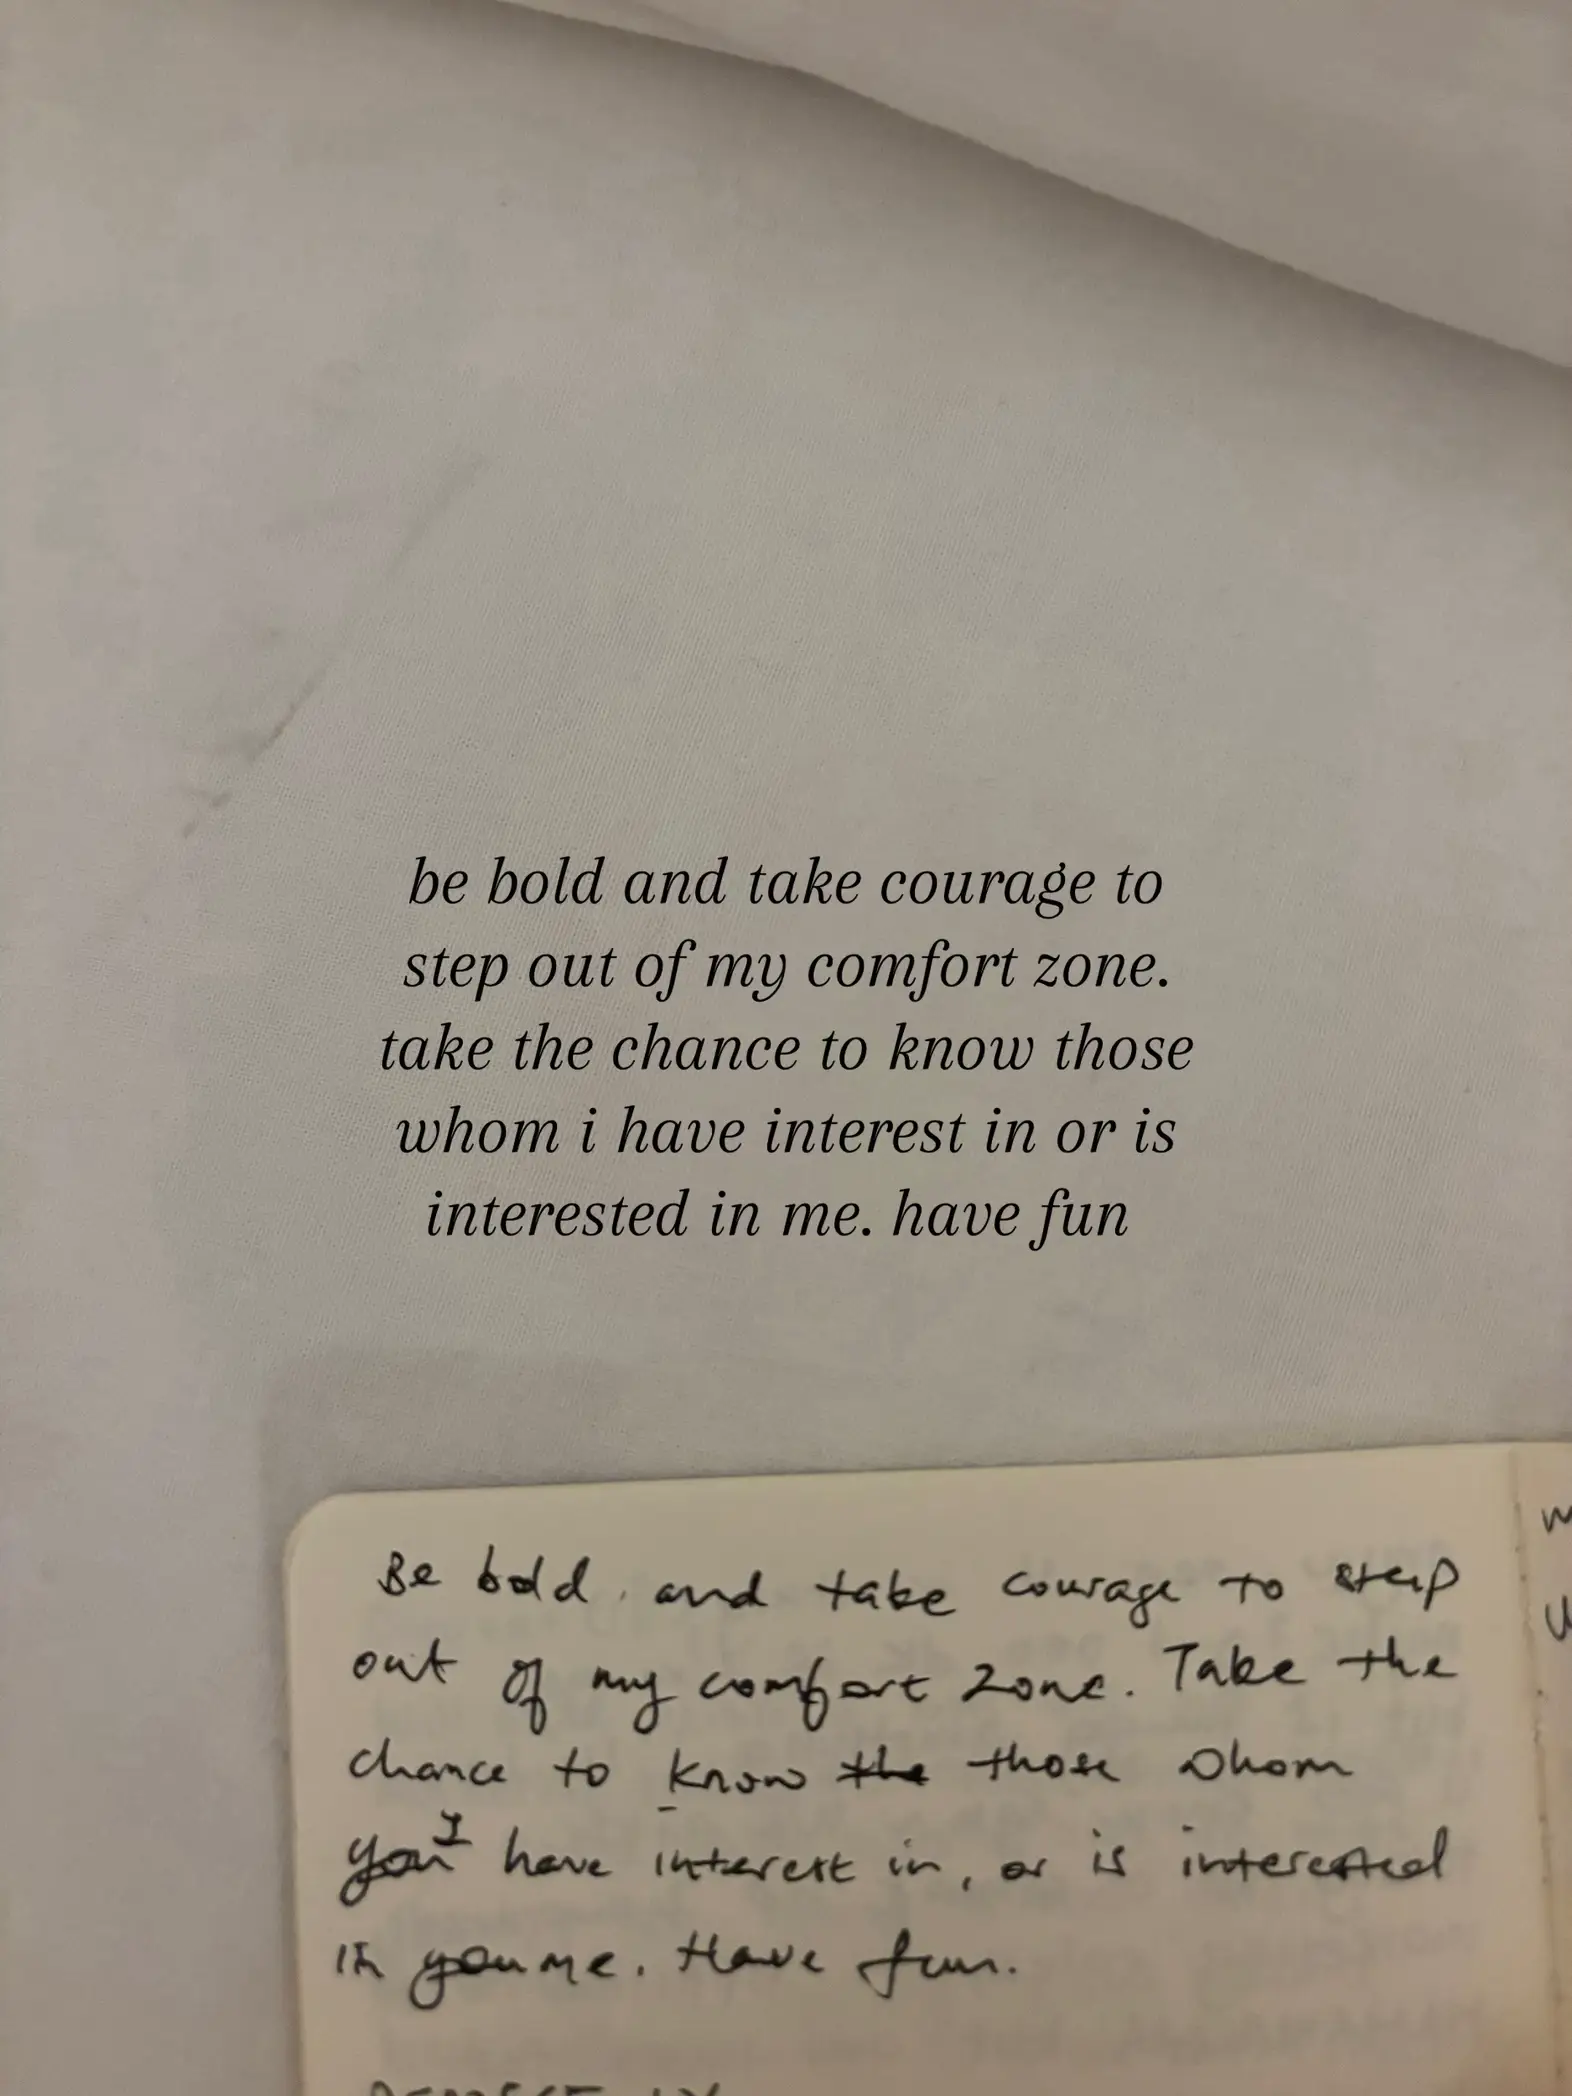 be bold and take courage to
step out of my comfort zone.
take the chance to know those
whom i have interest in or is
interested in me. have fun
Be bold and take courage to step
out of my comfort zone. Take the
chance to know the those whom
you I have interest in, or is interested
in you me. Have fun.